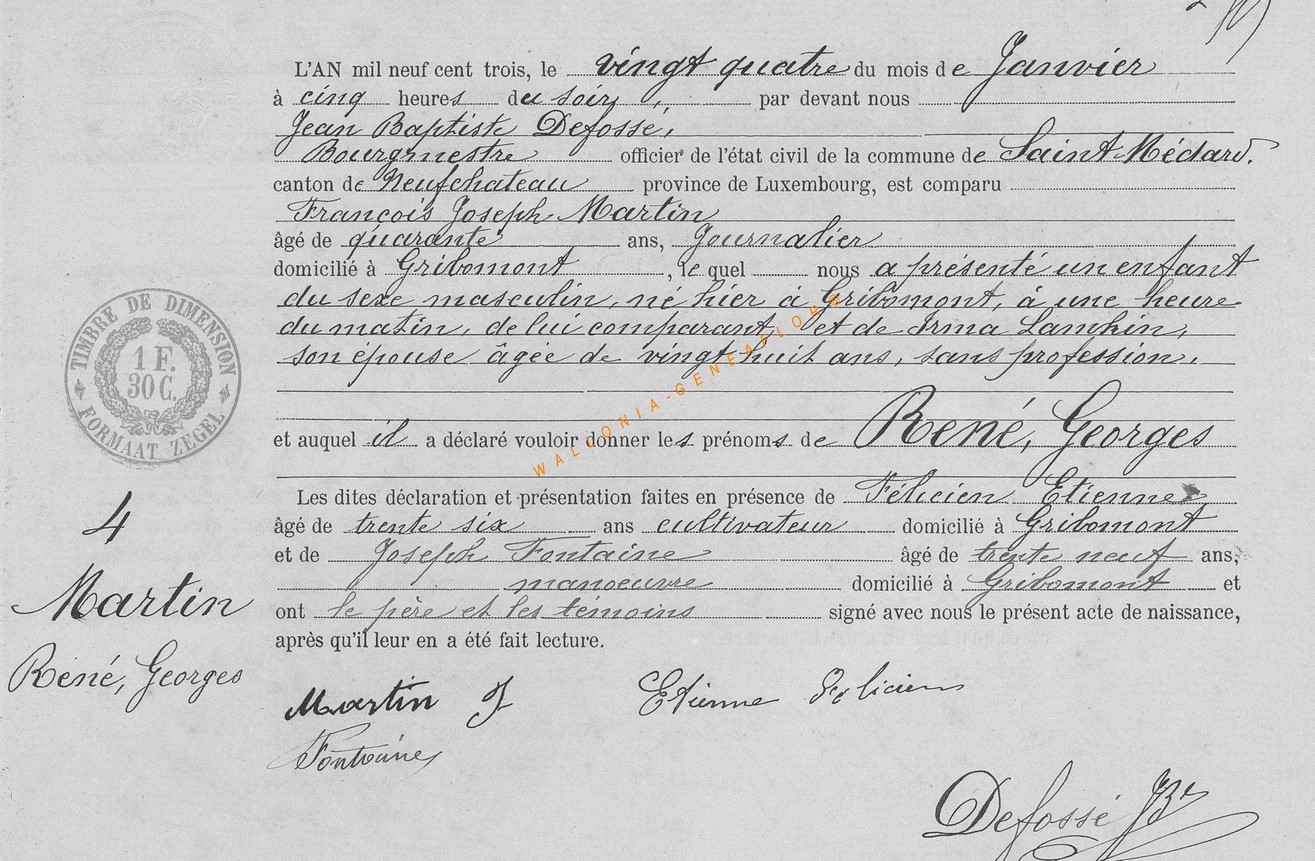 L'AN mil neuf cent trois, le vingt quatre du mois de Janvier
à cinq heures du soir, par devant nous
Jean Baptiste Defossé,
Bourgmestre officier de l'état civil de la commune de Saint-Médard.
canton de Neufchateau province de Luxembourg, est comparu
François Joseph Martin
âgé de quarante ans, Journalier
domicilié à Gribomont, le quel nous a présenté un enfant
du sexe masculin, né hier à Gribomont, à une heure
du matin, de lui comparant, et de Irma Lamhin,
son épouse âgée de vingt huit ans, sans profession.
et auquel il a déclaré vouloir donner les prénoms de René, Georges
Les dites déclaration et présentation faites en présence de Félicien Etienne
âgé de trente six ans cultivateur domicilié à Gribomont
et de Joseph Fontaine âgé de trente neuf ans,
manoeuvre domicilié à Gribomont et
ont le père et les témoins signé avec nous le présent acte de naissance,
après qu'il leur en a été fait lecture.
TIMBRE DE DIMENSION
1 F.
30 C.
FORMAAT ZEGEL
4
Martin
René, Georges
Martin J
Etienne Félicien
Fontaine
Defossé JBte
WALLONIA-GENEAFLORE